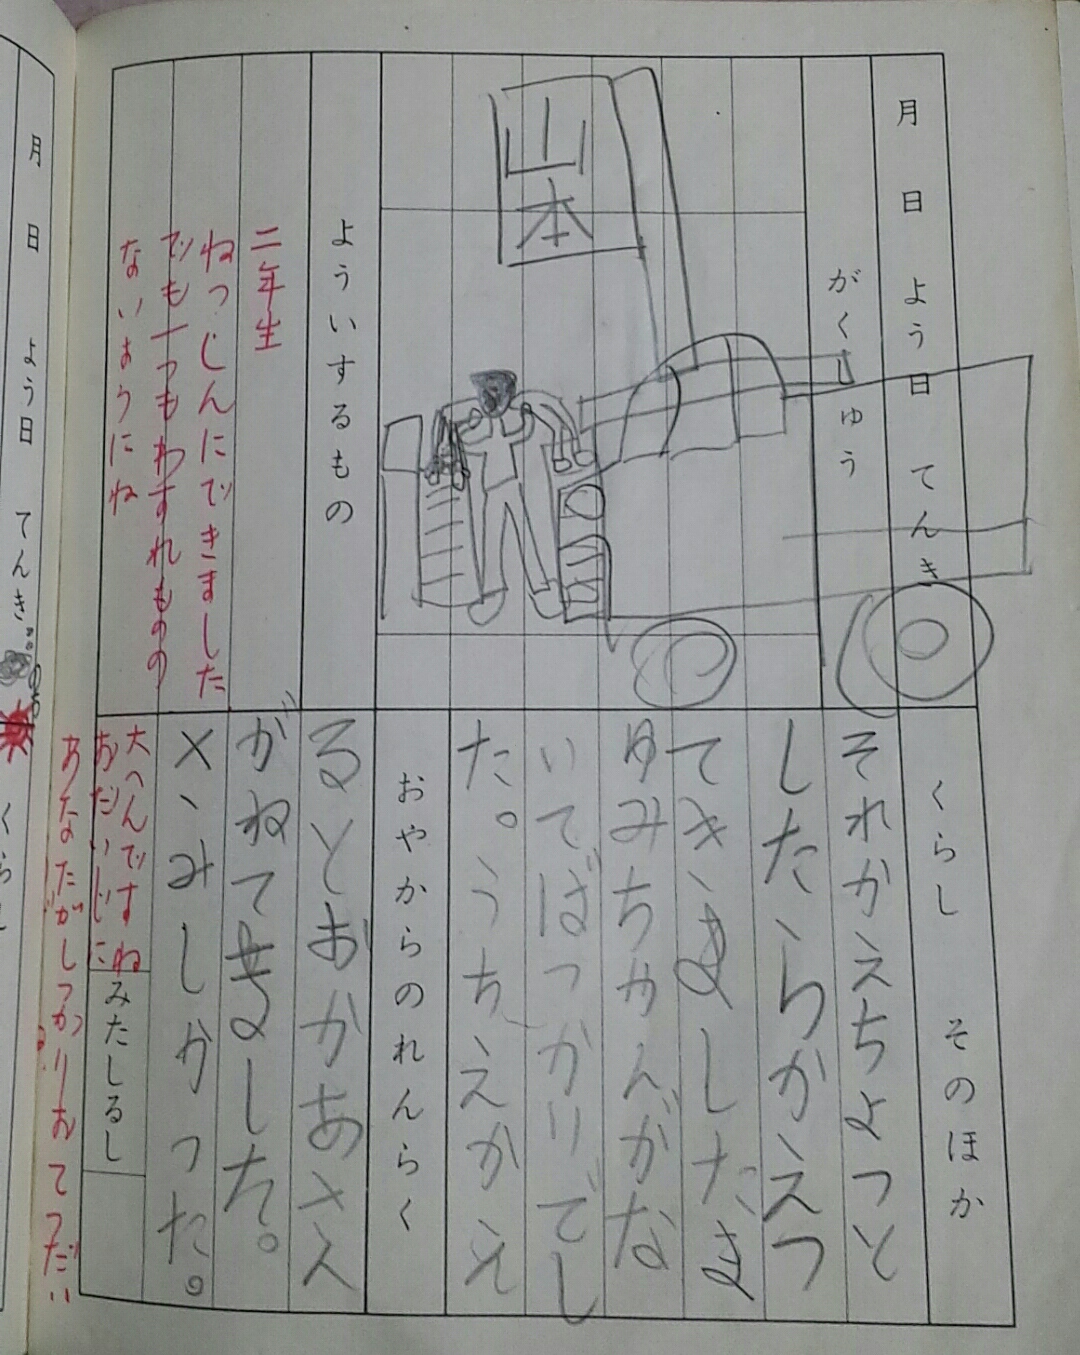 月 日 よう日 てんき
がくしゅう
山本
よういするもの
二年生
ねっしんにできました
でも一つもわすれものの
ないようにね
くらし そのほか
それかえちよつと
したらかえつ
てき、ましたま
ゆみちやんがな
いてばっかりでし
た。うち、えかえ
おやからのれんらく
るとおかあさん
がねてました。
さ、みしかった。
大へんですね
おだいじに
みたしるし
あなたがしっかりおてつだい
月 日 よう日 てんき